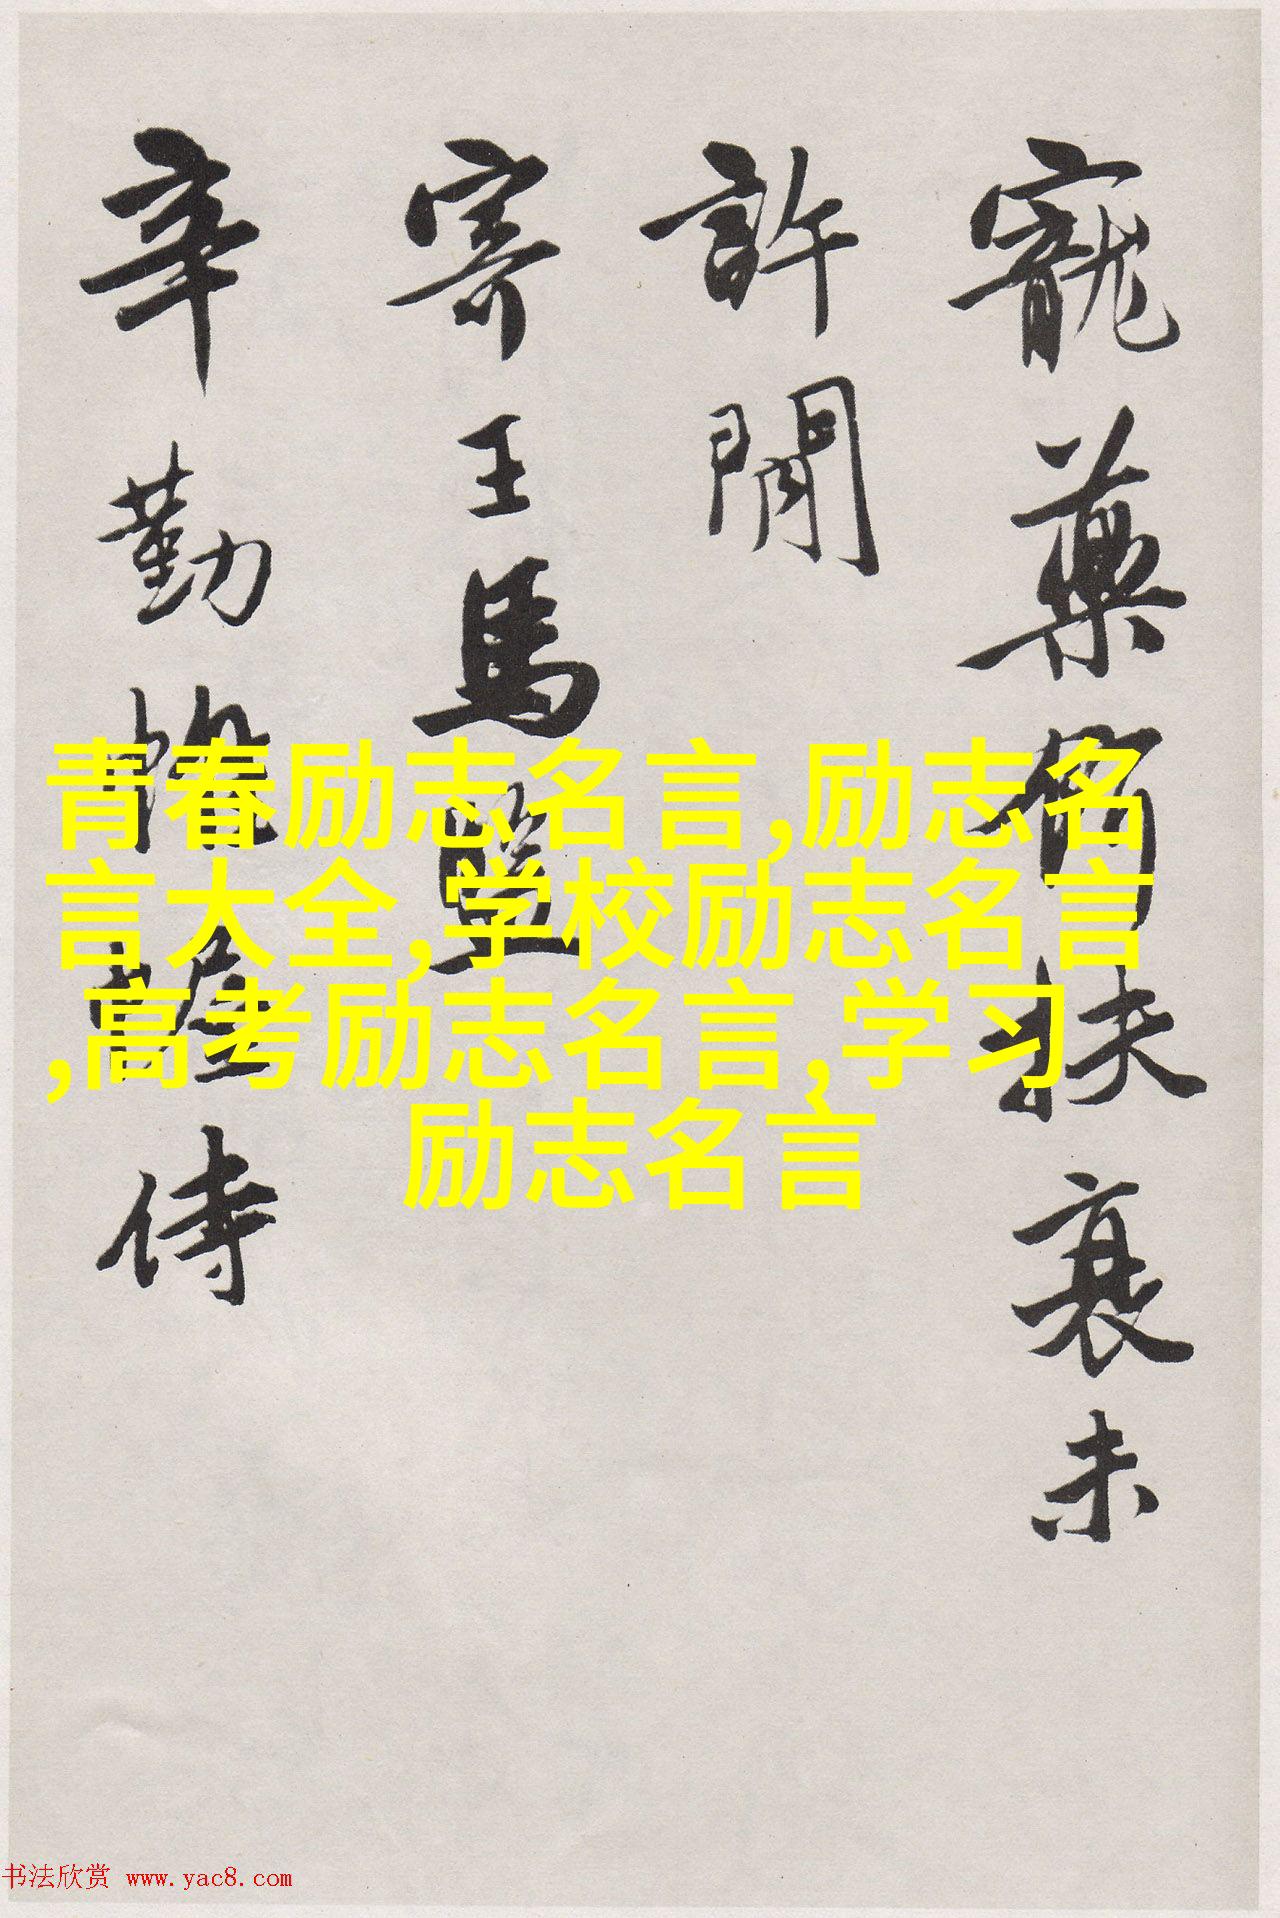 寵藥仍扶衰未
許閒
寄王馬監
辛勤帷幄侍
青春励志名言,励志名
言大全,学校励志名言
,高考励志名言,学习
励志名言
书法欣赏 www.yac8.com